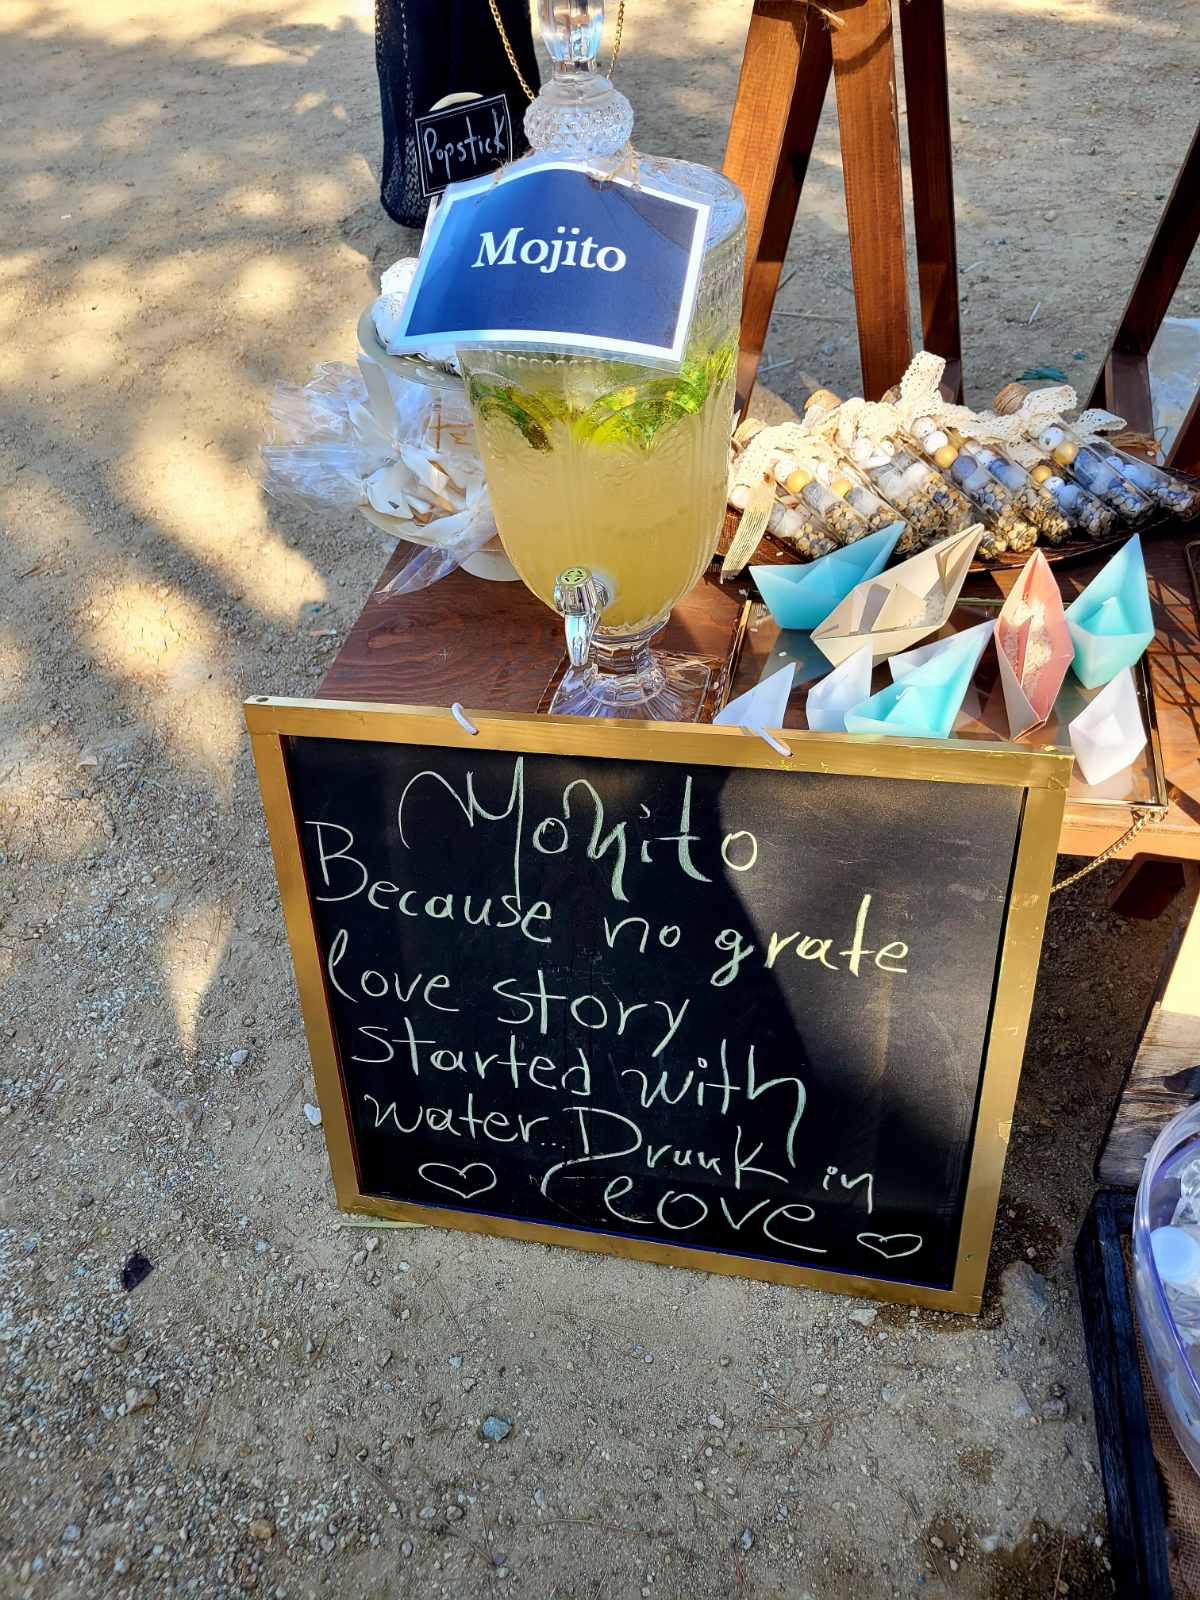 Popstick
Mojito
Mohito
Because no grate
love story
started with
water... Drunk in
♡ Leove ♡